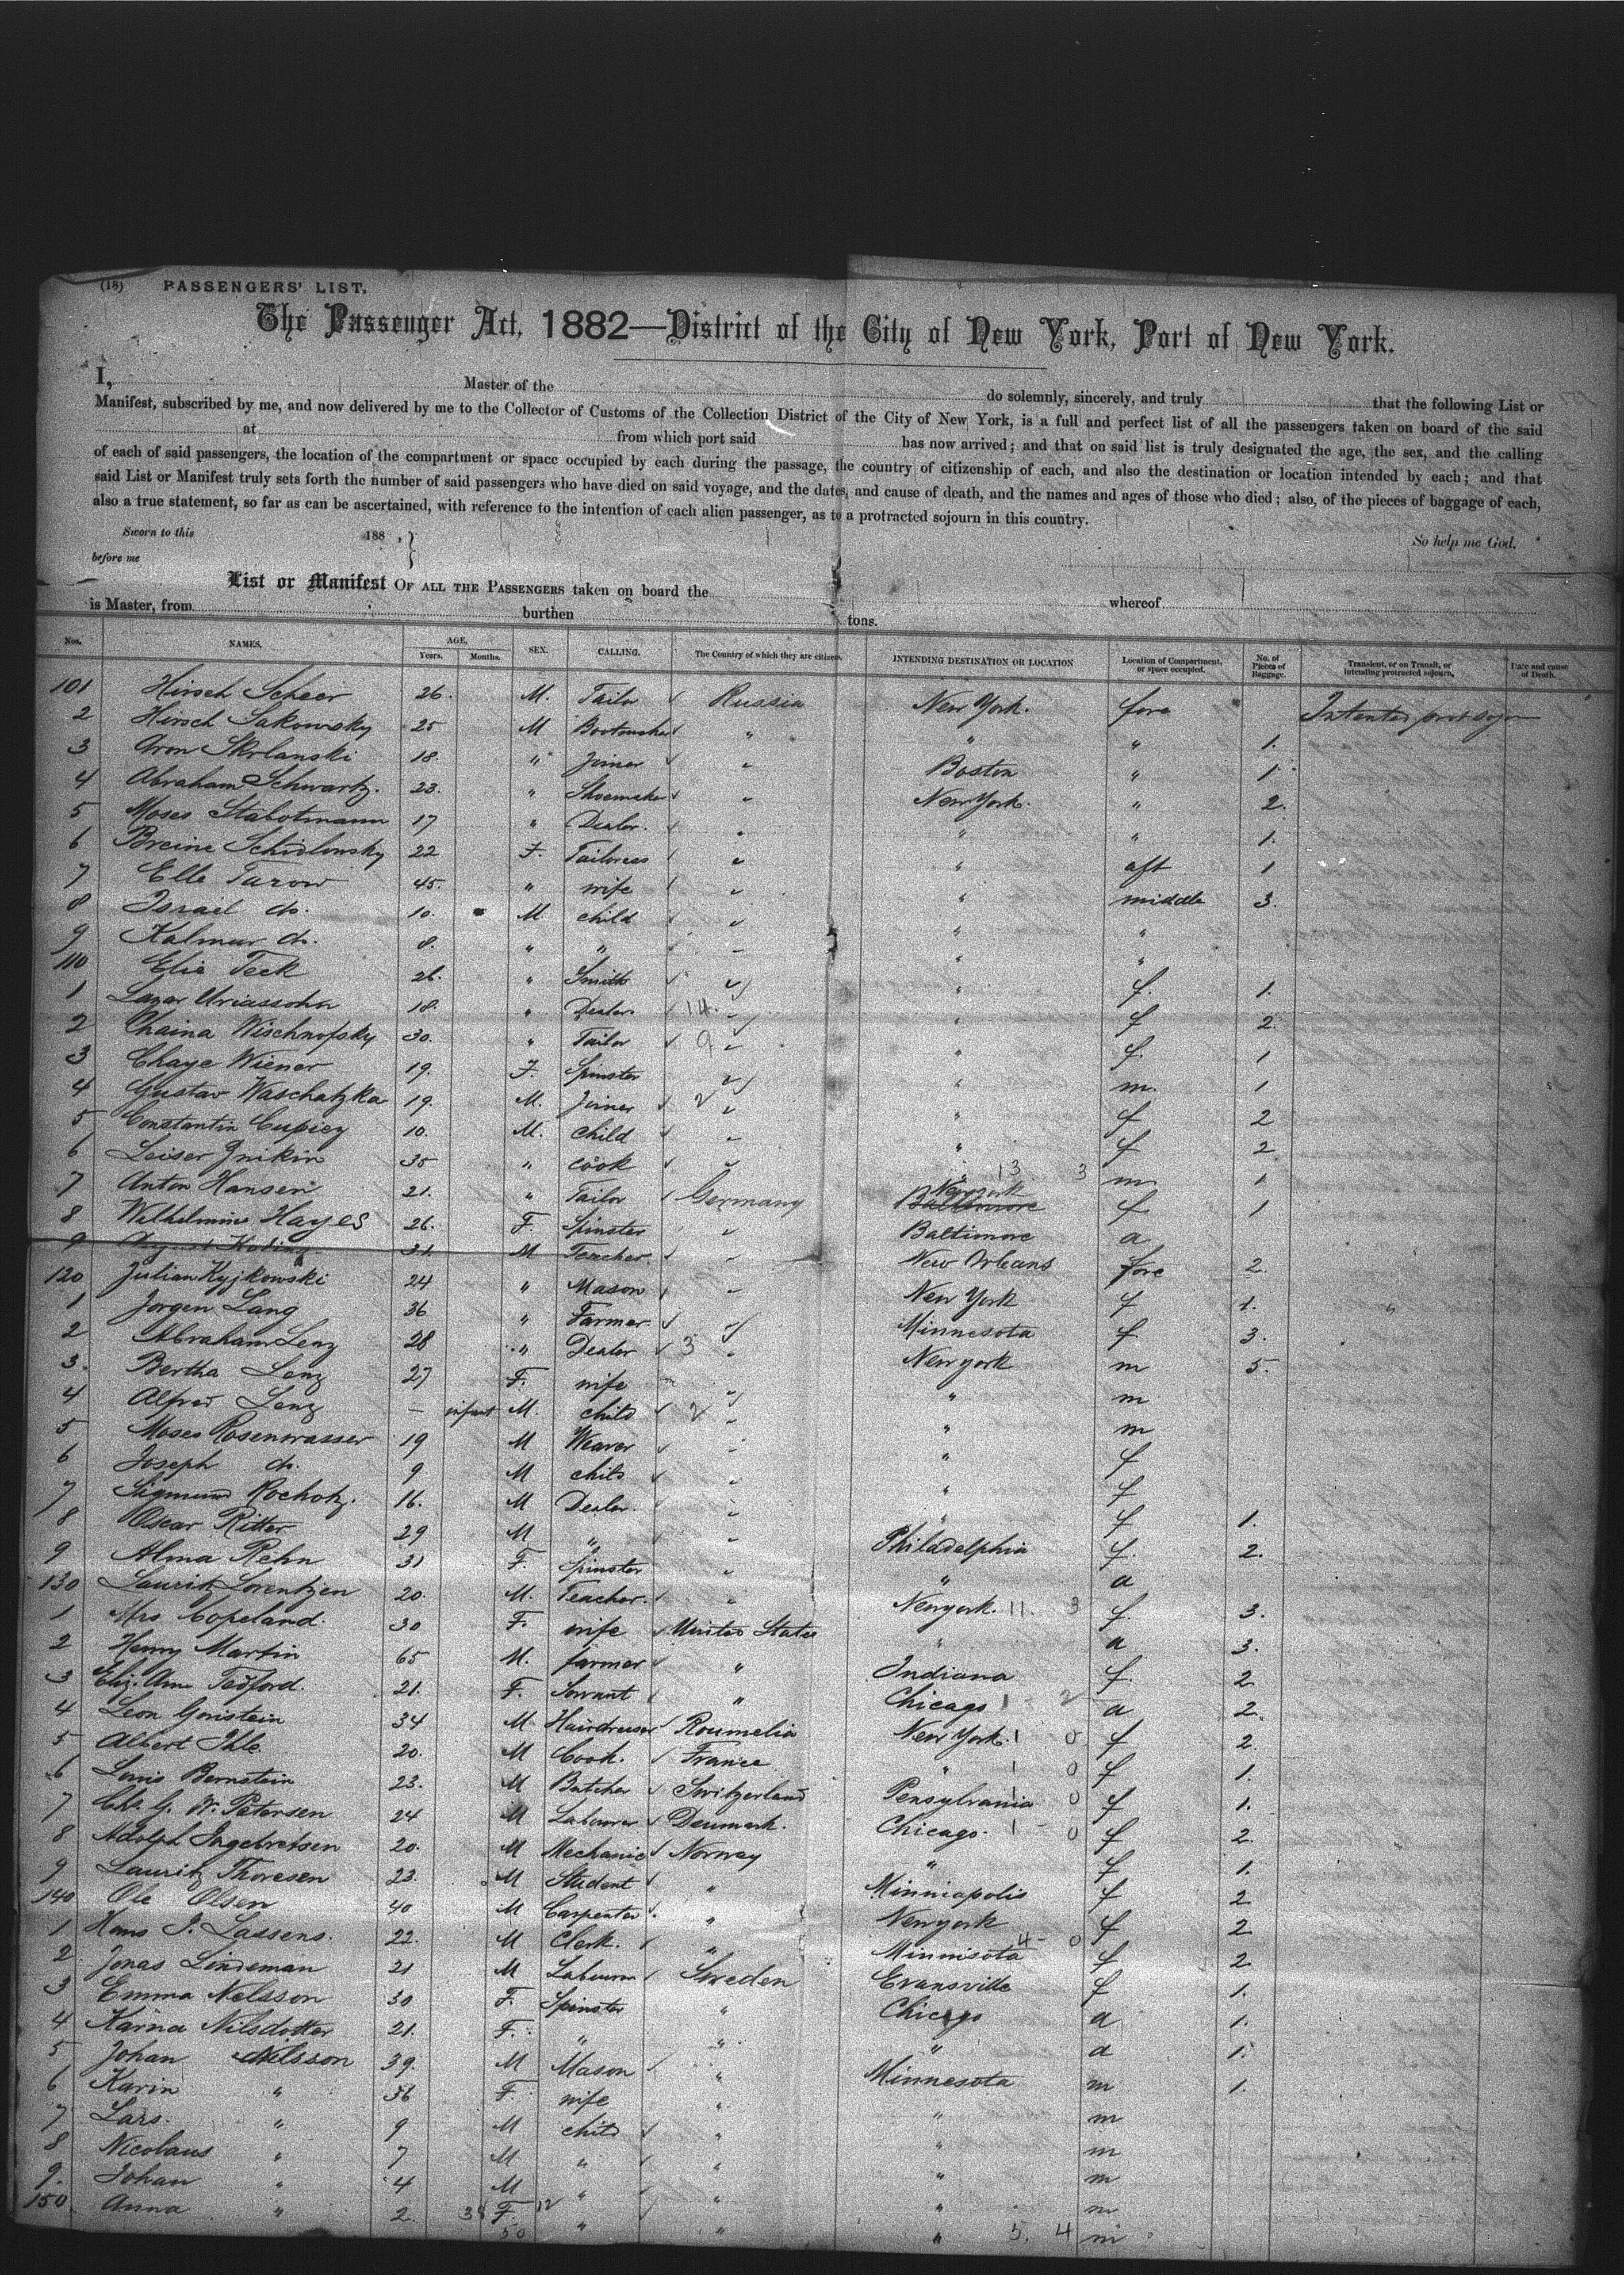 (18) PASSENGERS' LIST.
The Passenger Act, 1882—District of the City of New York, Port of New York.
I, Master of the do solemnly, sincerely, and truly that the following List or
Manifest, subscribed by me, and now delivered by me to the Collector of Customs of the Collection District of the City of New York, is a full and perfect list of all the passengers taken on board of the said
at from which port said has now arrived; and that on said list is truly designated the age, the sex, and the calling
of each of said passengers, the location of the compartment or space occupied by each during the passage, the country of citizenship of each, and also the destination or location intended by each; and that
said List or Manifest truly sets forth the number of said passengers who have died on said voyage, and the dates, and cause of death, and the names and ages of those who died; also, of the pieces of baggage of each,
also a true statement, so far as can be ascertained, with reference to the intention of each alien passenger, as to a protracted sojourn in this country.
Sworn to this 188 , } So help me God.
before me
List or Manifest OF ALL THE PASSENGERS taken on board the whereof
is Master, from burthen tons.
Nos. NAMES. AGE. Years. Months. SEX. CALLING. The Country of which they are citizens. INTENDING DESTINATION OR LOCATION Location of Compartment, or space occupied. No. of Pieces of Baggage. Transient, or on Transit, or intending protracted sojourn. Date and cause of Death.
101 Hirsch Scheer 26. M. Tailor Russia New York. fore
2 Hirsch Sakowsky 25 M " " " 1.
3 Aron Skolanski 18. " Joiner " Boston " 1.
4 Abraham Schwartz. 23. " Shoemaker " New York. " 2.
5 Moses Stabotmann 17 " Dealer. " " " 1.
6 Breine Schidlowsky 22 F. Tailoress " " aft 1
7 Elle Tarow 45. " wife " " middle 3.
8 Israel do. 10. M child " " "
9 Kalman do. 8. " " " " "
110 Elie Teck 26. " Smith " " f. 1.
1 Lazar Uriassohn 18. " Dealer 14. " " f 2.
2 Chaina Wischnofsky 30. " Tailor 9 " " f. 1
3 Chaye Wiener 19. F. Spinster " " m. 1
4 Gustav Waschatzka 19. M. Joiner 2 " " f 2
5 Constantin Cupiey 10. M. child " " f 2.
6 Leiser Znikin 35 " cook " " 13 3 m. 1
7 Anton Hansen 21. " Tailor Germany Baltimore New york f 1
8 Wilhelmine Hayes 26. F. Spinster " Baltimore a
9 August 31 M Teacher. " New Orleans fore 2.
120 Julian Kyjkowski 24 " Mason " New York f 1. "
1 Jorgen Lang 36 " Farmer " Minnesota f 3.
2 Abraham Lenz 28 " Dealer 3 " New york m 5.
3. Bertha Lenz 27 F. wife " " m
4 Alfred Lenz — infant M. child 2 " " m
5 Moses Rosenwasser 19 M Weaver " " f
6 Joseph do. 9 M child " " f
7 Sigmund Rochotz. 16. M Dealer. " " f 1.
8 Oscar Ritter 29 M " " Philadelphia f. 2.
9 Alma Rehn 31 F. Spinster " " a
130 Lauritz Lorentzen 20. M. Teacher. " New york. 11. 3 f. 3.
1 Mrs Copeland. 30 F. wife United States " a 3.
2 Henry Martin 65 M. farmer " Indiana f. 2
3 Eliz. Ann Tedford. 21. F. Servant " Chicago 1 2 a 2.
4 Leon Gonstein 34 M. Hairdresser Roumelia New York. 1 0 f 2.
5 Albert Ihle. 20. M Cook. France " 1 0 f 1.
6 Louis Bernstein 23. M Butcher Switzerland Pensylvania 0 f 1.
7 Chr. G. W. Petersen 24 M Labourer Denmark. Chicago. 1 0 f 2.
8 Adolph Ingebretsen 20. M Mechanic Norway " f 1.
9 Lauritz Thoresen 23. M Student " Minniapolis f 2
140 Ole Olsen 40 M Carpenter " New york f 2
1 Hans J. Lassens. 22. M Clerk. " Minnisota 4 0 f 2
2 Jonas Lindeman 21 M Labourer Sweden Evansville f 1.
3 Emma Nelsson 30 F. Spinster " Chicago a 1.
4 Karna Nilsdotter 21. F. " " " a 1.
5 Johan Nelsson 39. M Mason " Minnesota m 1.
6 Karin " 36 F. wife " " m
7 Lars. " 9 M child " " m
8 Nicolaus " 7 M " " " m
9. Johan " 4 M " " " m
150 Anna " 2. 38 F. 12 " " " 5. 4 m
50